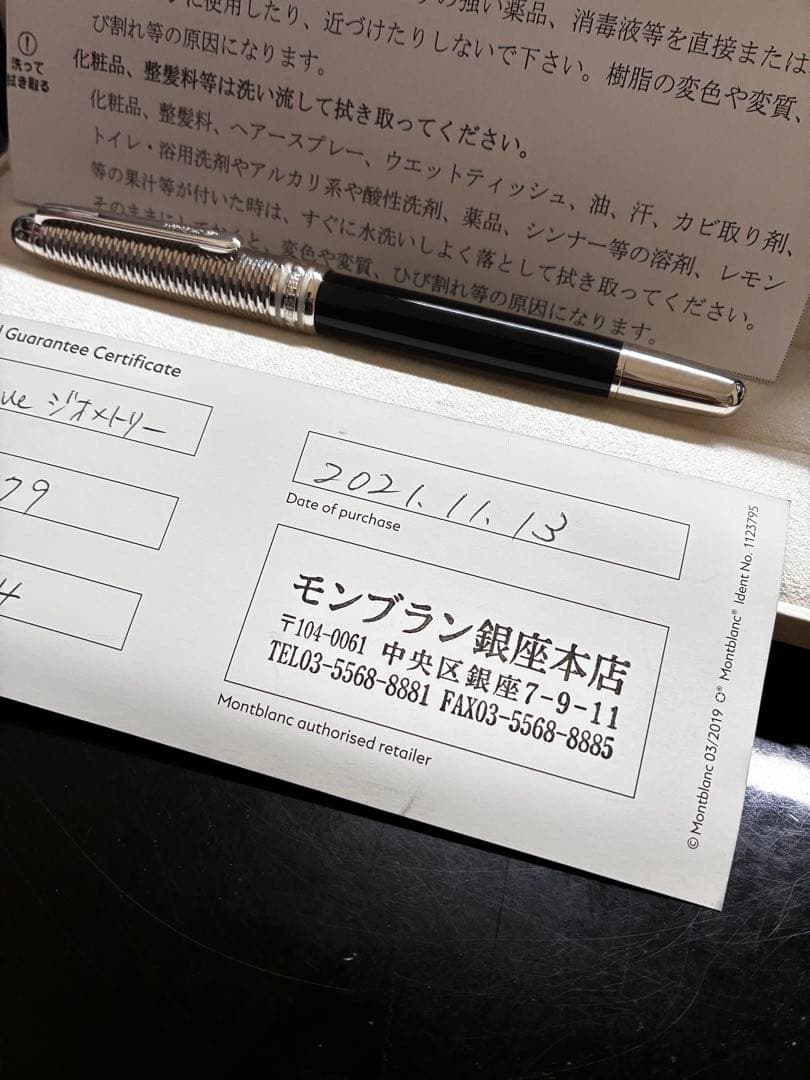 に使用したり、近づけたりしないで下さい。樹脂の変色や変質、
の強い薬品、消毒液等を直接または
び割れ等の原因になります。
洗って
拭き取る
化粧品、整髪料等は洗い流して拭き取ってください。
化粧品、整髪料、ヘアースプレー、ウエットティッシュ、油、汗、カビ取り剤、
トイレ・浴用洗剤やアルカリ系や酸性洗剤、薬品、シンナー等の溶剤、レモン
等の果汁等が付いた時は、すぐに水洗いしよく落として拭き取ってください。
そのままにしておくと、変色や変質、ひび割れ等の原因になります。
Guarantee Certificate
ue ジオメトリー
79
4
2021.11.13
Date of purchase
モンブラン銀座本店
〒104-0061 中央区銀座7-9-11
TEL03-5568-8881 FAX03-5568-8885
Montblanc authorised retailer
© Montblanc 03/2019 Montblanc® Ident No. 1123795